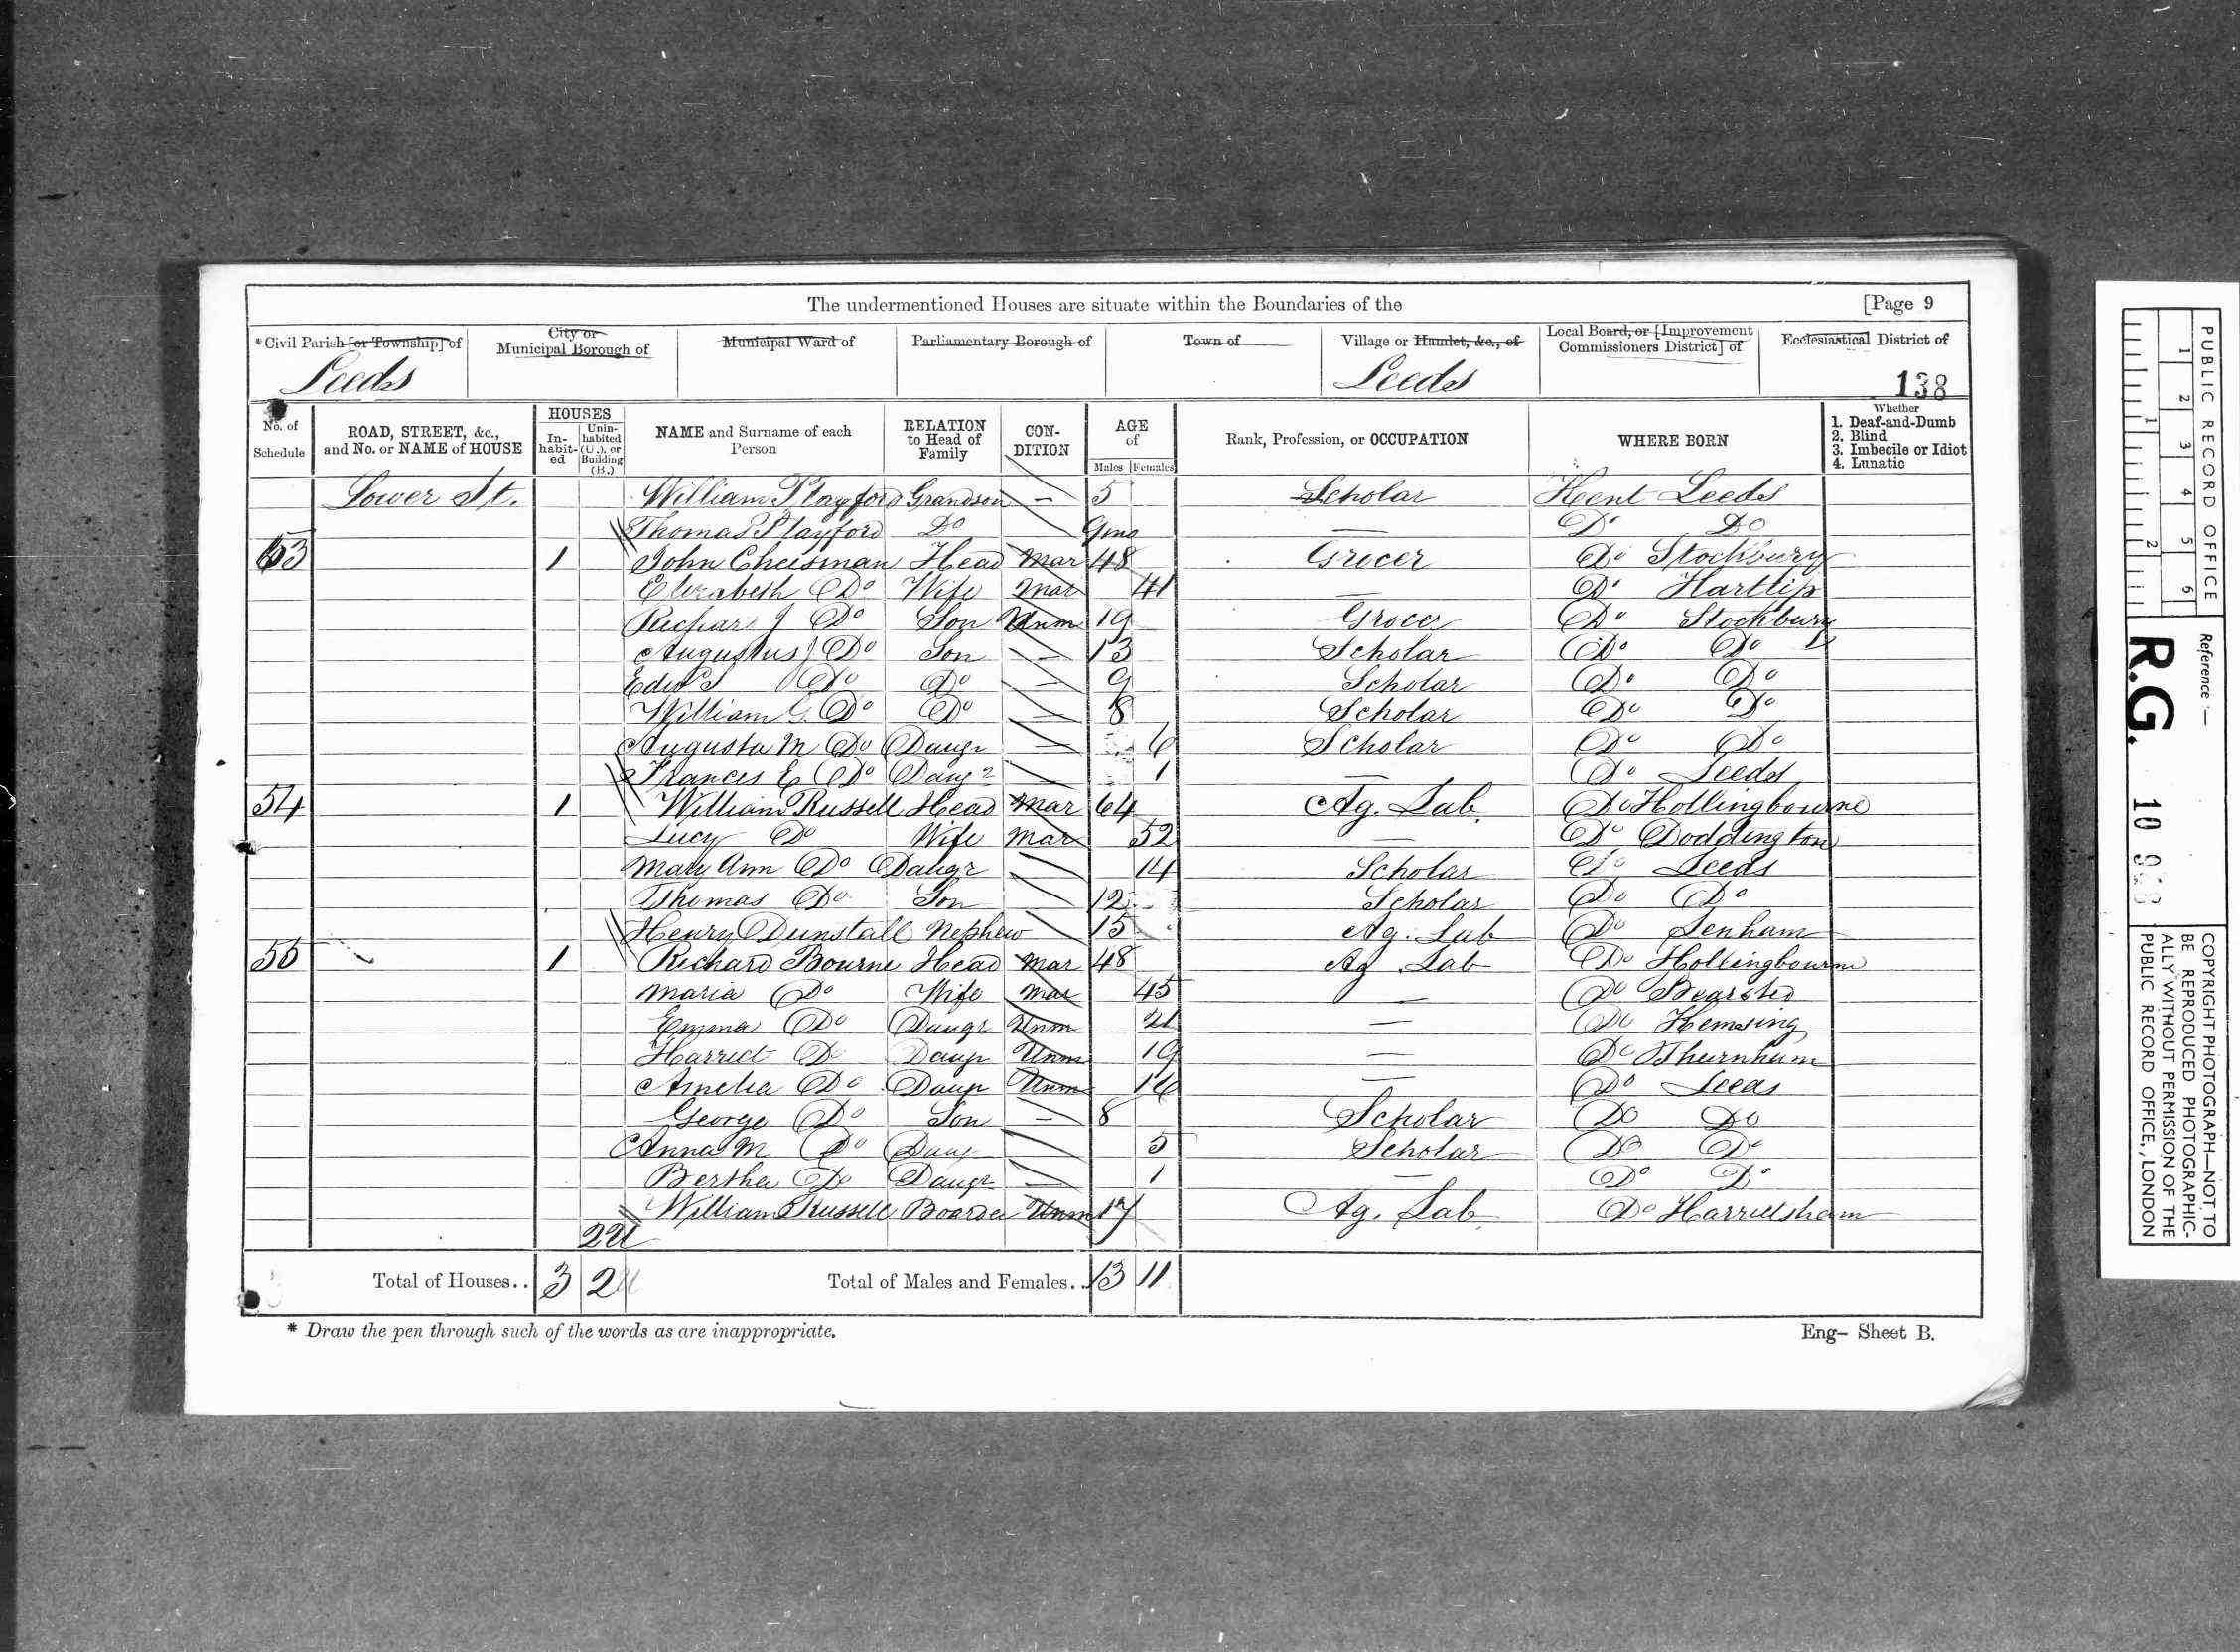 The undermentioned Houses are situate within the Boundaries of the [Page 9
*Civil Parish [or Township] of City or Municipal Borough of Municipal Ward of Parliamentary Borough of Town of Village or Hamlet, &c., of Local Board, or [Improvement Commissioners District] of Ecclesiastical District of
Leeds Leeds 138
No. of Schedule ROAD, STREET, &c., and No. or NAME of HOUSE HOUSES In-habit-ed Unin-habited (U.), or Building (B.) NAME and Surname of each Person RELATION to Head of Family CON-DITION AGE of Males Females Rank, Profession, or OCCUPATION WHERE BORN Whether 1. Deaf-and-Dumb 2. Blind 3. Imbecile or Idiot 4. Lunatic
Lower St. William Playford Grandson — 5 Scholar Kent Leeds
Thomas Playford Do 9mo — Do Do
53 1 John Cheesman Head Mar 48 Grocer Do Stockbury
Elizabeth Do Wife Mar 41 — Do Hartlip
Richard J Do Son Unm 19 Grocer Do Stockbury
Augustus J Do Son — 13 Scholar Do Do
Do Do — 9 Scholar Do Do
William G. Do Do — 8 Scholar Do Do
Augusta M Do Daugr — 6 Scholar Do Do
Frances E Do Daugr 1 — Do Leeds
54 1 William Russell Head Mar 64 Ag. Lab. Do Hollingbourne
Lucy Do Wife Mar 52 — Do Doddington
Mary Ann Do Daugr 14 Scholar Do Leeds
Thomas Do Son 12 Scholar Do Do
Henry Dunstall Nephew 15 Ag. Lab Do Lenham
55 1 Richard Bourne Head Mar 48 Ag Lab Do Hollingbourne
Maria Do Wife Mar 45 — Do Bearsted
Emma Do Daugr Unm 21 — Do Kemsing
Harriet Do Daugr Unm 19 — Do Thurnham
Amelia Do Daugr Unm 16 — Do Leeds
George Do Son — 8 Scholar Do Do
Anna M Do Daug 5 Scholar Do Do
Bertha Do Daugr — 1 — Do Do
William Russell Boarder Unm 17 Ag. Lab. Do Harrietsham
Total of Houses.. 3 Total of Males and Females.. 13 11
* Draw the pen through such of the words as are inappropriate. Eng- Sheet B.
PUBLIC RECORD OFFICE
1 2 3 4 5 6
1 2
Reference :—
R.G. 10
COPYRIGHT PHOTOGRAPH—NOT TO
BE REPRODUCED PHOTOGRAPHIC-
ALLY WITHOUT PERMISSION OF THE
PUBLIC RECORD OFFICE, LONDON